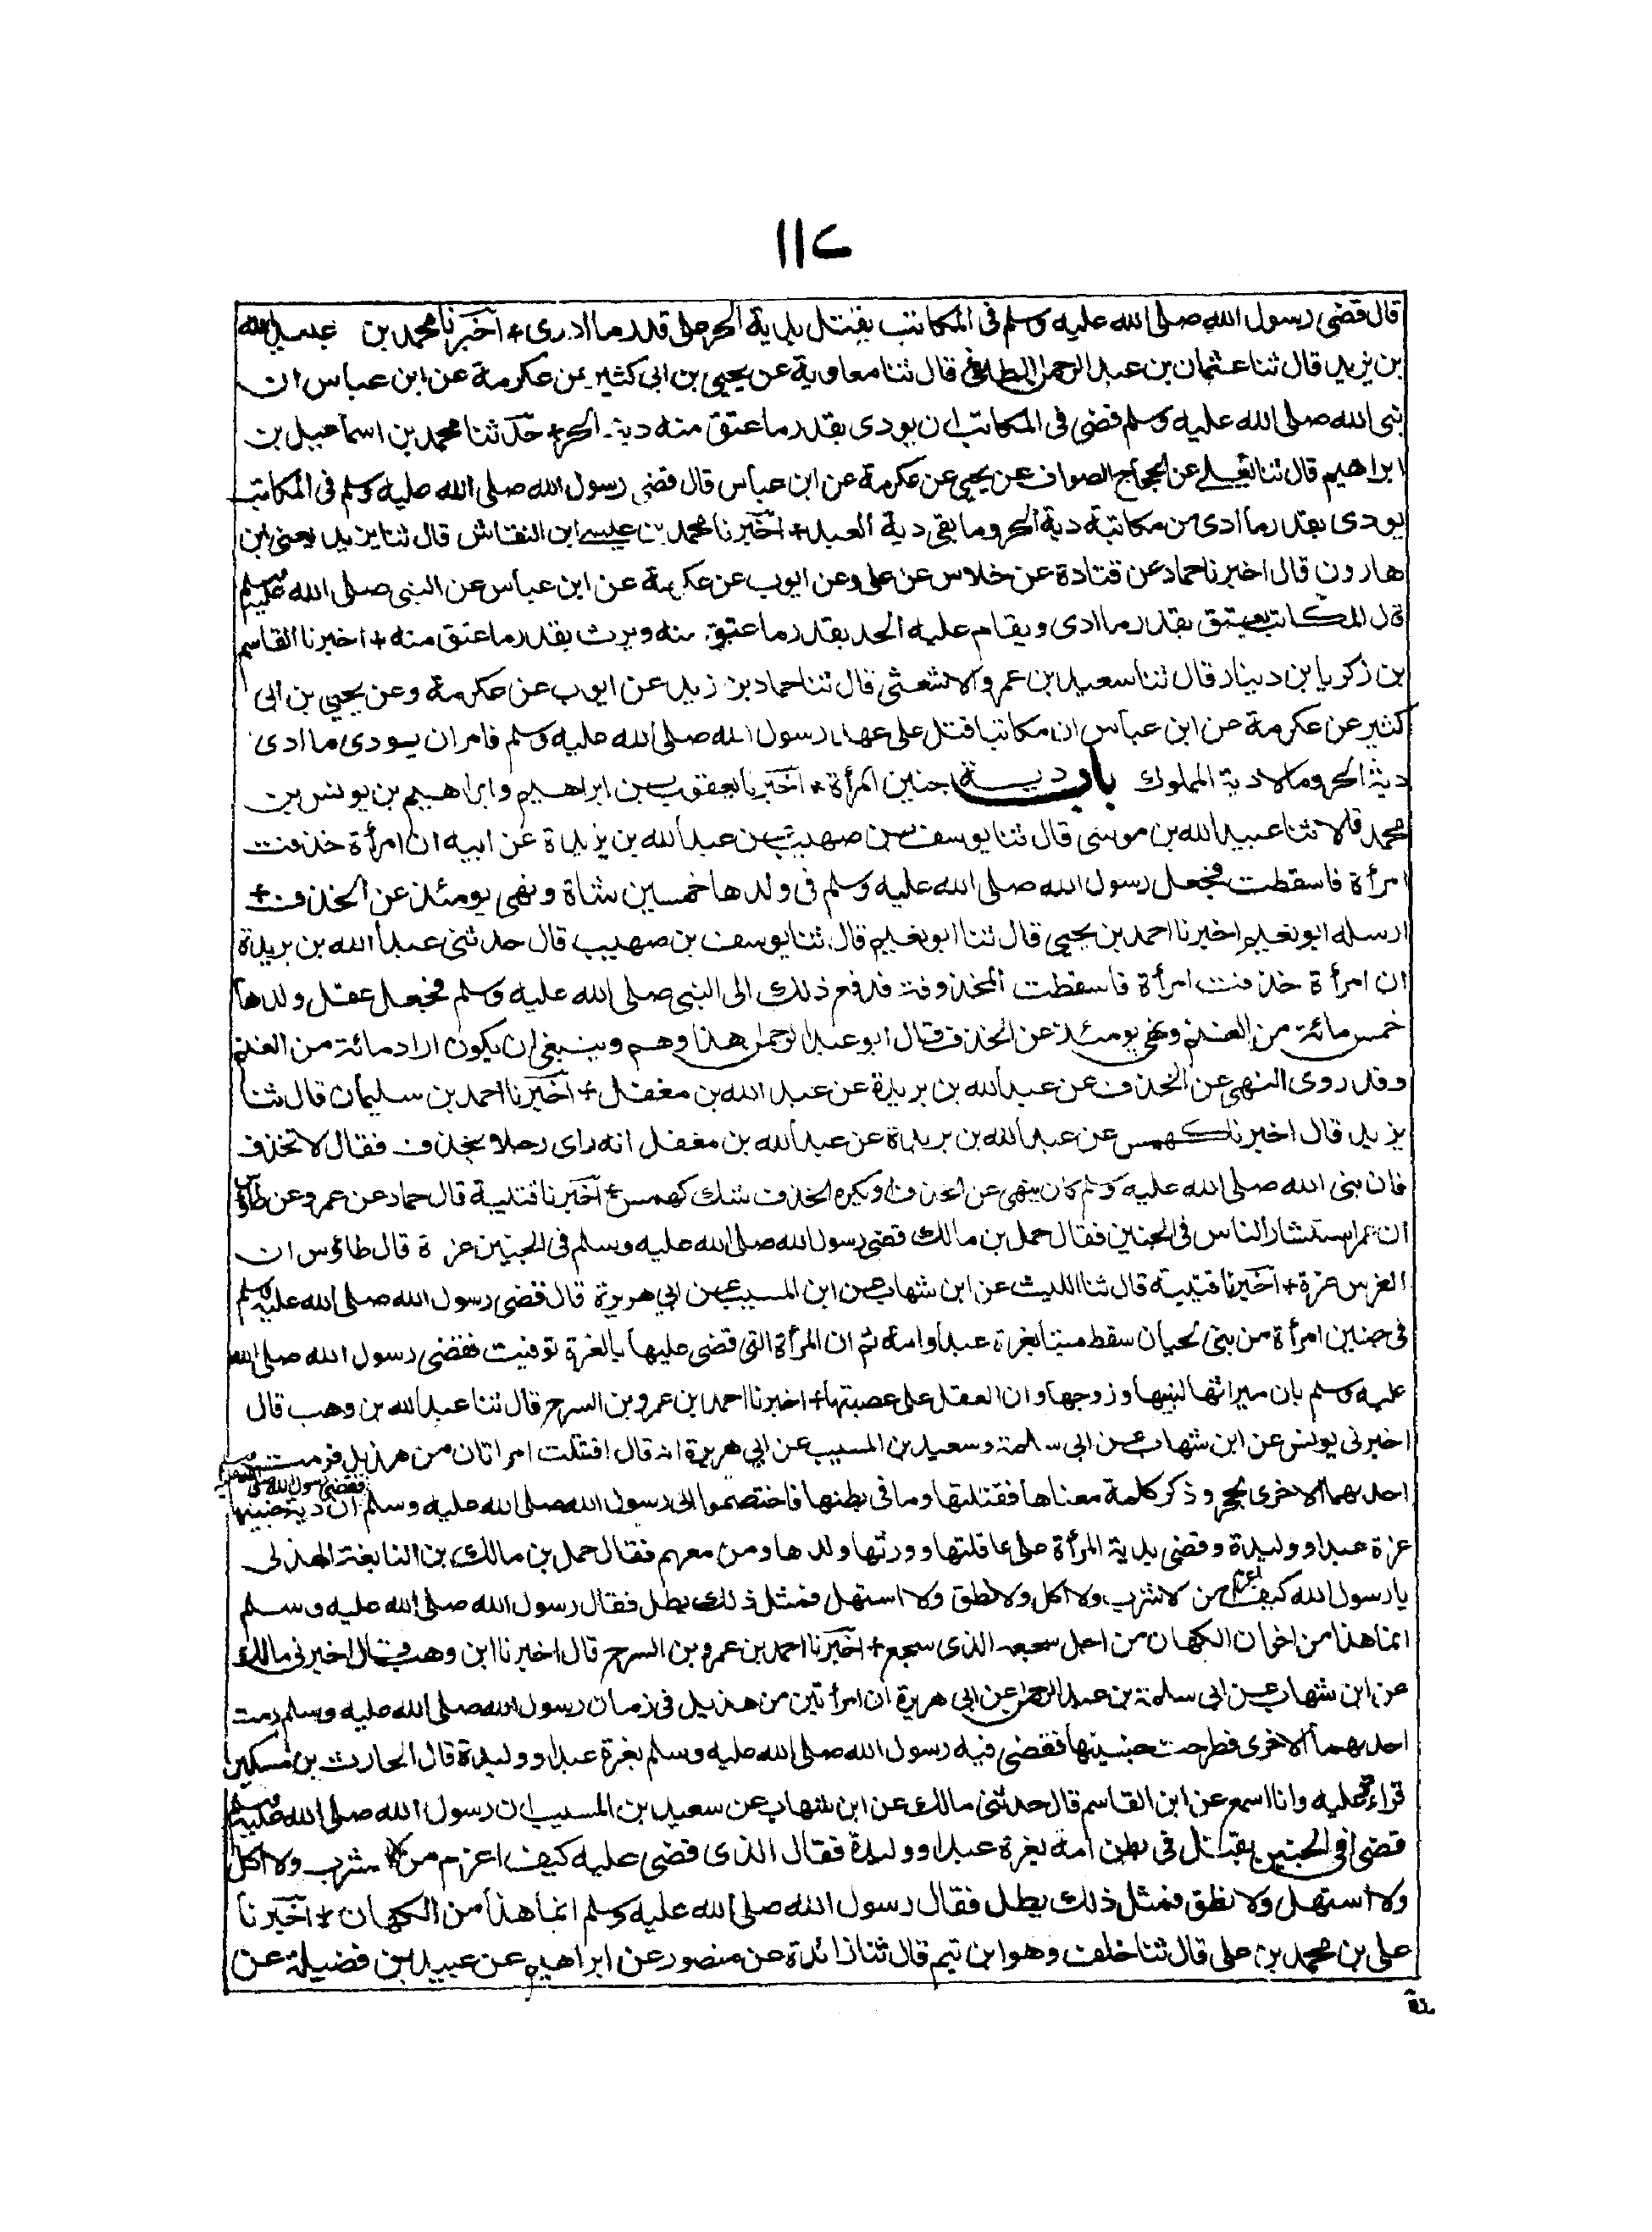 ١١٢
قال قضى رسول الله صلى الله عليه وسلم فى المكاتب يقتل بدية الحر على قدر ما ادى + اخبرنا محمد بن عبيد الله
بن يزيد قال ثنا عثمان بن عبد الرحمن الطلائفى قال ثنا معاوية عن يحيى بن ابى كثير عن عكرمة عن ابن عباس ان
نبى الله صلى الله عليه وسلم قضى فى المكاتب ان يودى بقدر ما عتق منه دية الحر + حدثنا محمد بن اسماعيل بن
ابراهيم قال ثنا يعلى عن الحجاج الصواف عن يحيى عن عكرمة عن ابن عباس قال قضى رسول الله صلى الله عليه وسلم فى المكاتب
يودى بقدر ما ادى من مكاتبة دية الحر وما بقى دية العبد + اخبرنا محمد بن عيسى ابن النقاش قال ثنا يزيد يعنى ابن
هارون قال اخبرنا حماد عن قتادة عن خلاس عن على وعن ايوب عن عكرمة عن ابن عباس عن النبى صلى الله عليه وسلم
قال المكاتب يعتق بقدر ما ادى ويقام عليه الحد بقدر ما عتق منه ويرث بقدر ما عتق منه + اخبرنا القاسم
بن زكريا بن دينار قال ثنا سعيد بن عمرو الاشعثى قال ثنا حماد بن زيد عن ايوب عن عكرمة وعن يحيى بن ابى
كثير عن عكرمة عن ابن عباس ان مكاتبا قتل على عهد رسول الله صلى الله عليه وسلم فامر ان يودى ما ادى
دية الحر وما لا دية المملوك باب دية جنين المرأة * اخبرنا يعقوب بن ابراهيم وابراهيم بن يونس بن
محمد قالا ثنا عبيد الله بن موسى قال ثنا يوسف بن صهيب عن عبد الله بن يزيدة عن ابيه ان امرأة خذفت
امرأة فاسقطت فجعل رسول الله صلى الله عليه وسلم فى ولدها خمسين شاة ونهى يومئذ عن الخذف +
ارسله ابو نعيم اخبرنا احمد بن يحيى قال ثنا ابو نعيم قال ثنا يوسف بن صهيب قال حدثنى عبد الله بن بريدة
ان امرأة خذفت امرأة فاسقطت المخذوفة فرفع ذلك الى النبى صلى الله عليه وسلم فجعل عقل ولدها
خمس مائة من الغنم ونهى يومئذ عن الخذف قال ابو عبد الرحمن هذا وهم وينبغى ان يكون اراد مائة من الغنم
وقد روى النهى عن الخذف عن عبد الله بن بريدة عن عبد الله بن مغفل + اخبرنا احمد بن سليمان قال ثنا
يزيد قال اخبرنا كهمس عن عبد الله بن بريدة عن عبد الله بن مغفل انه راى رجلا يخذف فقال لا تخذف
فان نبى الله صلى الله عليه وسلم كان ينهى عن الخذف او يكره الخذف شك كهمس + اخبرنا قتيبة قال حماد عن عمرو عن طاؤس
ان عمر استشار الناس فى الجنين فقال حمل بن مالك قضى رسول الله صلى الله عليه وسلم فى الجنين غرة قال طاؤس ان
الفرس غرة + اخبرنا قتيبة قال ثنا الليث عن ابن شهاب عن ابن المسيب عن ابى هريرة قال قضى رسول الله صلى الله عليه وسلم
فى جنين امرأة من بنى لحيان سقط ميتا بغرة عبد او امة ثم ان المرأة التى قضى عليها بالغرة توفيت فقضى رسول الله صلى الله
عليه وسلم بان ميراثها لبنيها وزوجها وان العقل على عصبتها + اخبرنا احمد بن عمرو بن السرح قال ثنا عبد الله بن وهب قال
اخبرنى يونس عن ابن شهاب عن ابى سلمة وسعيد بن المسيب عن ابى هريرة انه قال اقتتلت امراتان من هذيل فرمت
احدىهما الاخرى بحجر وذكر كلمة معناها فقتلتها وما فى بطنها فاختصموا الى رسول الله صلى الله عليه وسلم فقضى رسول الله صلى الله عليه وسلم ان دية جنينها
غرة عبد او وليدة وقضى بدية المرأة على عاقلتها وورثها ولدها ومن معهم فقال حمل بن مالك بن النابغة الهذلى
يا رسول الله كيف اغرم من لا شرب ولا اكل ولا نطق ولا استهل فمثل ذلك يطل فقال رسول الله صلى الله عليه وسلم
انما هذا من اخوان الكهان من اجل سجعه الذى سجع + اخبرنا احمد بن عمرو بن السرح قال اخبرنا ابن وهب قال اخبرنى مالك
عن ابن شهاب عن ابى سلمة بن عبد الرحمن عن ابى هريرة ان امرأتين من هذيل فى زمان رسول الله صلى الله عليه وسلم رمت
احدىهما الاخرى فطرحت جنينها فقضى فيه رسول الله صلى الله عليه وسلم بغرة عبد او وليدة قال الحارث بن مسكين
قراءة عليه وانا اسمع عن ابن القاسم قال حدثنى مالك عن ابن شهاب عن سعيد بن المسيب ان رسول الله صلى الله عليه وسلم
قضى فى الجنين يقتل فى بطن امه بغرة عبد او وليدة فقال الذى قضى عليه كيف اغرم من لا شرب ولا اكل
ولا استهل ولا نطق فمثل ذلك يطل فقال رسول الله صلى الله عليه وسلم انما هذا من الكهان + اخبرنا
على بن محمد بن على قال ثنا خلف وهو ابن تميم قال ثنا زائدة عن منصور عن ابراهيم عن عبيد بن فضيلة عن